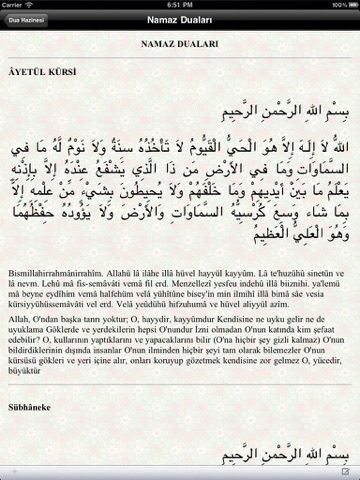 Carrier 6:51 PM 100%
Dua Hazinesi Namaz Duaları
NAMAZ DUALARI
ÂYETÜL KÜRSİ
بِسْمِ اللهِ الرَّحْمٰنِ الرَّحِيمِ
اَللهُ لَا إِلَهَ إِلاَّ هُوَ الْحَيُّ الْقَيُّومُ لَا تَأْخُذُهُ سِنَةٌ وَلَا نَوْمٌ لَّهُ مَا فِي
السَّمَاوَاتِ وَمَا فِي الْأَرْضِ مَن ذَا الَّذِي يَشْفَعُ عِنْدَهُ إِلاَّ بِإِذْنِهِ
يَعْلَمُ مَا بَيْنَ أَيْدِيهِمْ وَمَا خَلْفَهُمْ وَلَا يُحِيطُونَ بِشَيْءٍ مِّنْ عِلْمِهِ إِلاَّ
بِمَا شَاءَ وَسِعَ كُرْسِيُّهُ السَّمَاوَاتِ وَالْأَرْضَ وَلَا يَؤُودُهُ حِفْظُهُمَا
وَهُوَ الْعَلِيُّ الْعَظِيمُ
Bismillahirrahmânirrahîm. Allahû lâ ilâhe illâ hüvel hayyül kayyûm. Lâ te'huzühû sinetün ve
lâ nevm. Lehû mâ fis-semâvâti vemâ fil erd. Menzellezî yesfeu indehû illâ biiznihi. ya'lemü
mâ beyne eydîhim vemâ halfehüm velâ yühîtûne bisey'in min ilmihî illâ bimâ sâe vesia
kürsiyyühüssemâvâti vel erd. Velâ yeûdühü hifzuhumâ ve hüvel aliyyül azîm.
Allah, O'ndan başka tanrı yoktur; O, hayydir, kayyûmdur Kendisine ne uyku gelir ne de
uyuklama Göklerde ve yerdekilerin hepsi O'nundur İzni olmadan O'nun katında kim şefaat
edebilir? O, kullarının yaptıklarını ve yapacaklarını bilir (O'na hiçbir şey gizli kalmaz) O'nun
bildirdiklerinin dışında insanlar O'nun ilminden hiçbir şeyi tam olarak bilemezler O'nun
kürsüsü gökleri ve yeri içine alır, onları koruyup gözetmek kendisine zor gelmez O, yücedir,
büyüktür
Sübhâneke
بِسْمِ اللهِ الرَّحْمٰنِ الرَّحِيمِ